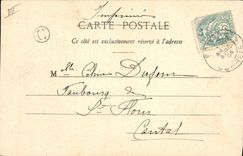 Imprimé
CARTE POSTALE
Ce côté est exclusivement réservé à l'adresse
C
Dufour
Faubourg de
St Flour
Cantal